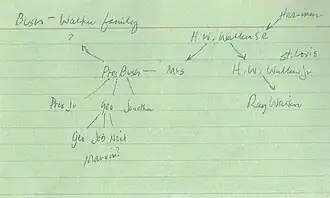 Bush - Walker family
Herman
H. W. Walker Sr
St. Louis
Pres. Bush — Mrs
H. W. Walker Jr
Pres Jr Geo Jonathan
Ray Walker
Geo Jeb Neil
Marvin?